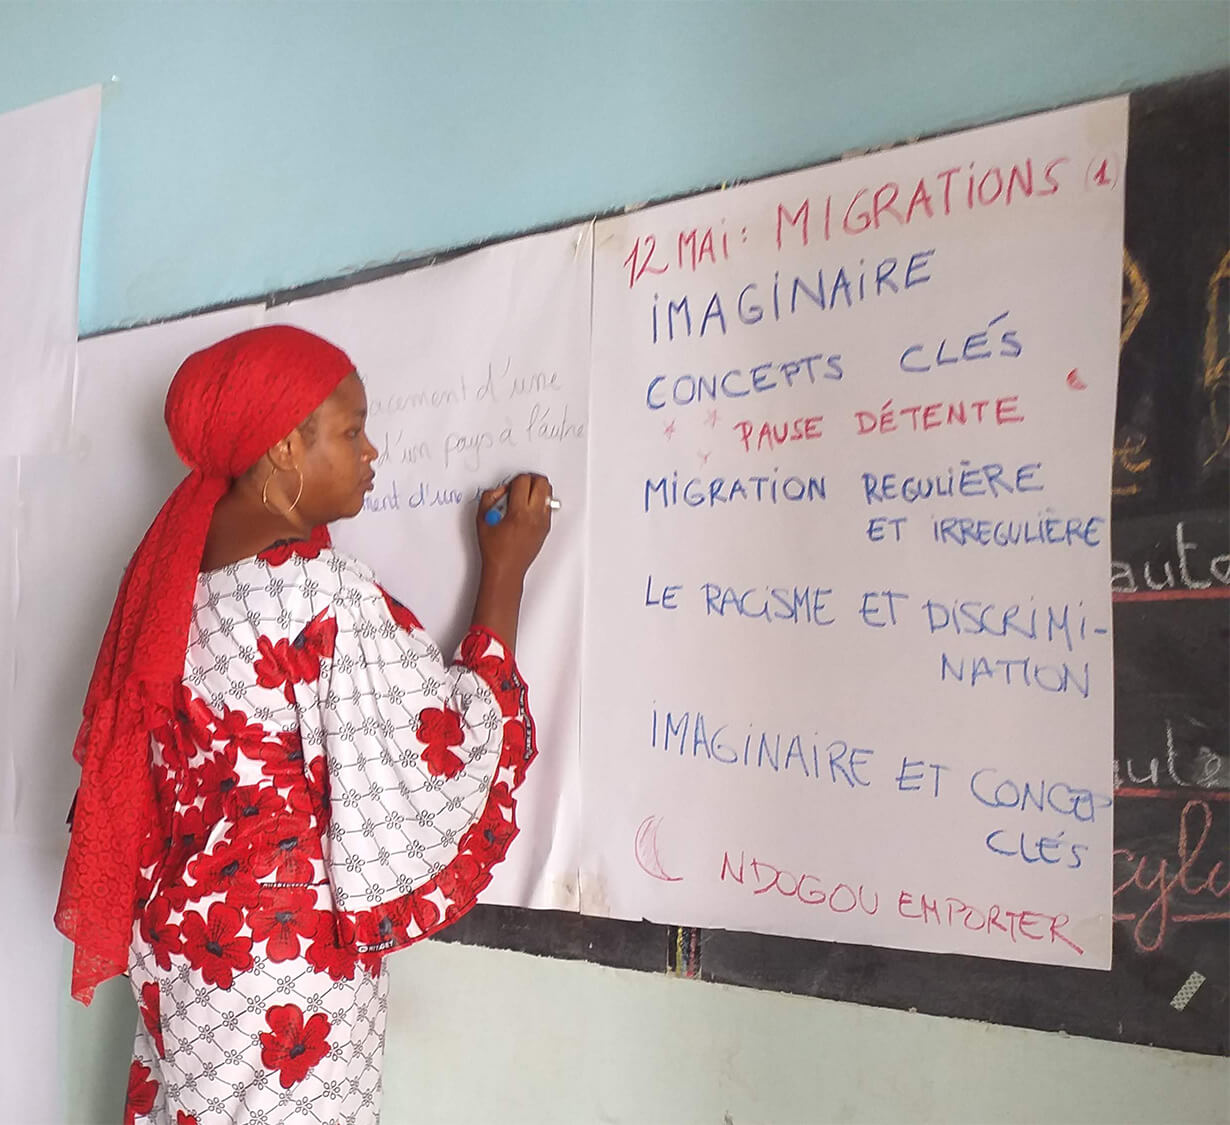 d'une
d'un pays à l'autre
d'une
12 MAi : MIGRATiONS (1)
iMAGiNAiRE
CONCEPTS CLÉS
PAUSE DÉTENTE
MiGRATION REGULIÈRE
ET iRREGULIÈRE
LE RACiSME ET DiSCRiMi-
NATION
iMAGiNAiRE ET CONCEP
CLÉS
NDOGOU EMPORTER